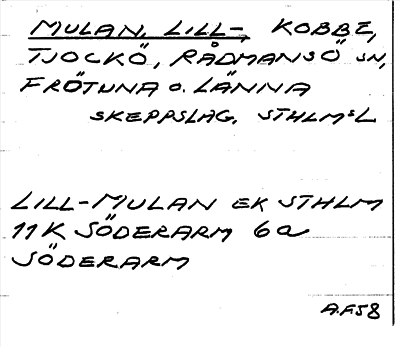 MULAN, LILL-, KOBBE,
TJOCKÖ, RÅDMANSÖ SN,
FRÖTUNA O. LÄNNA
SKEPPSLAG, STHLMSL
LILL-MULAN EK STHLM
11K SÖDERARM 6a
SÖDERARM
A.F.58